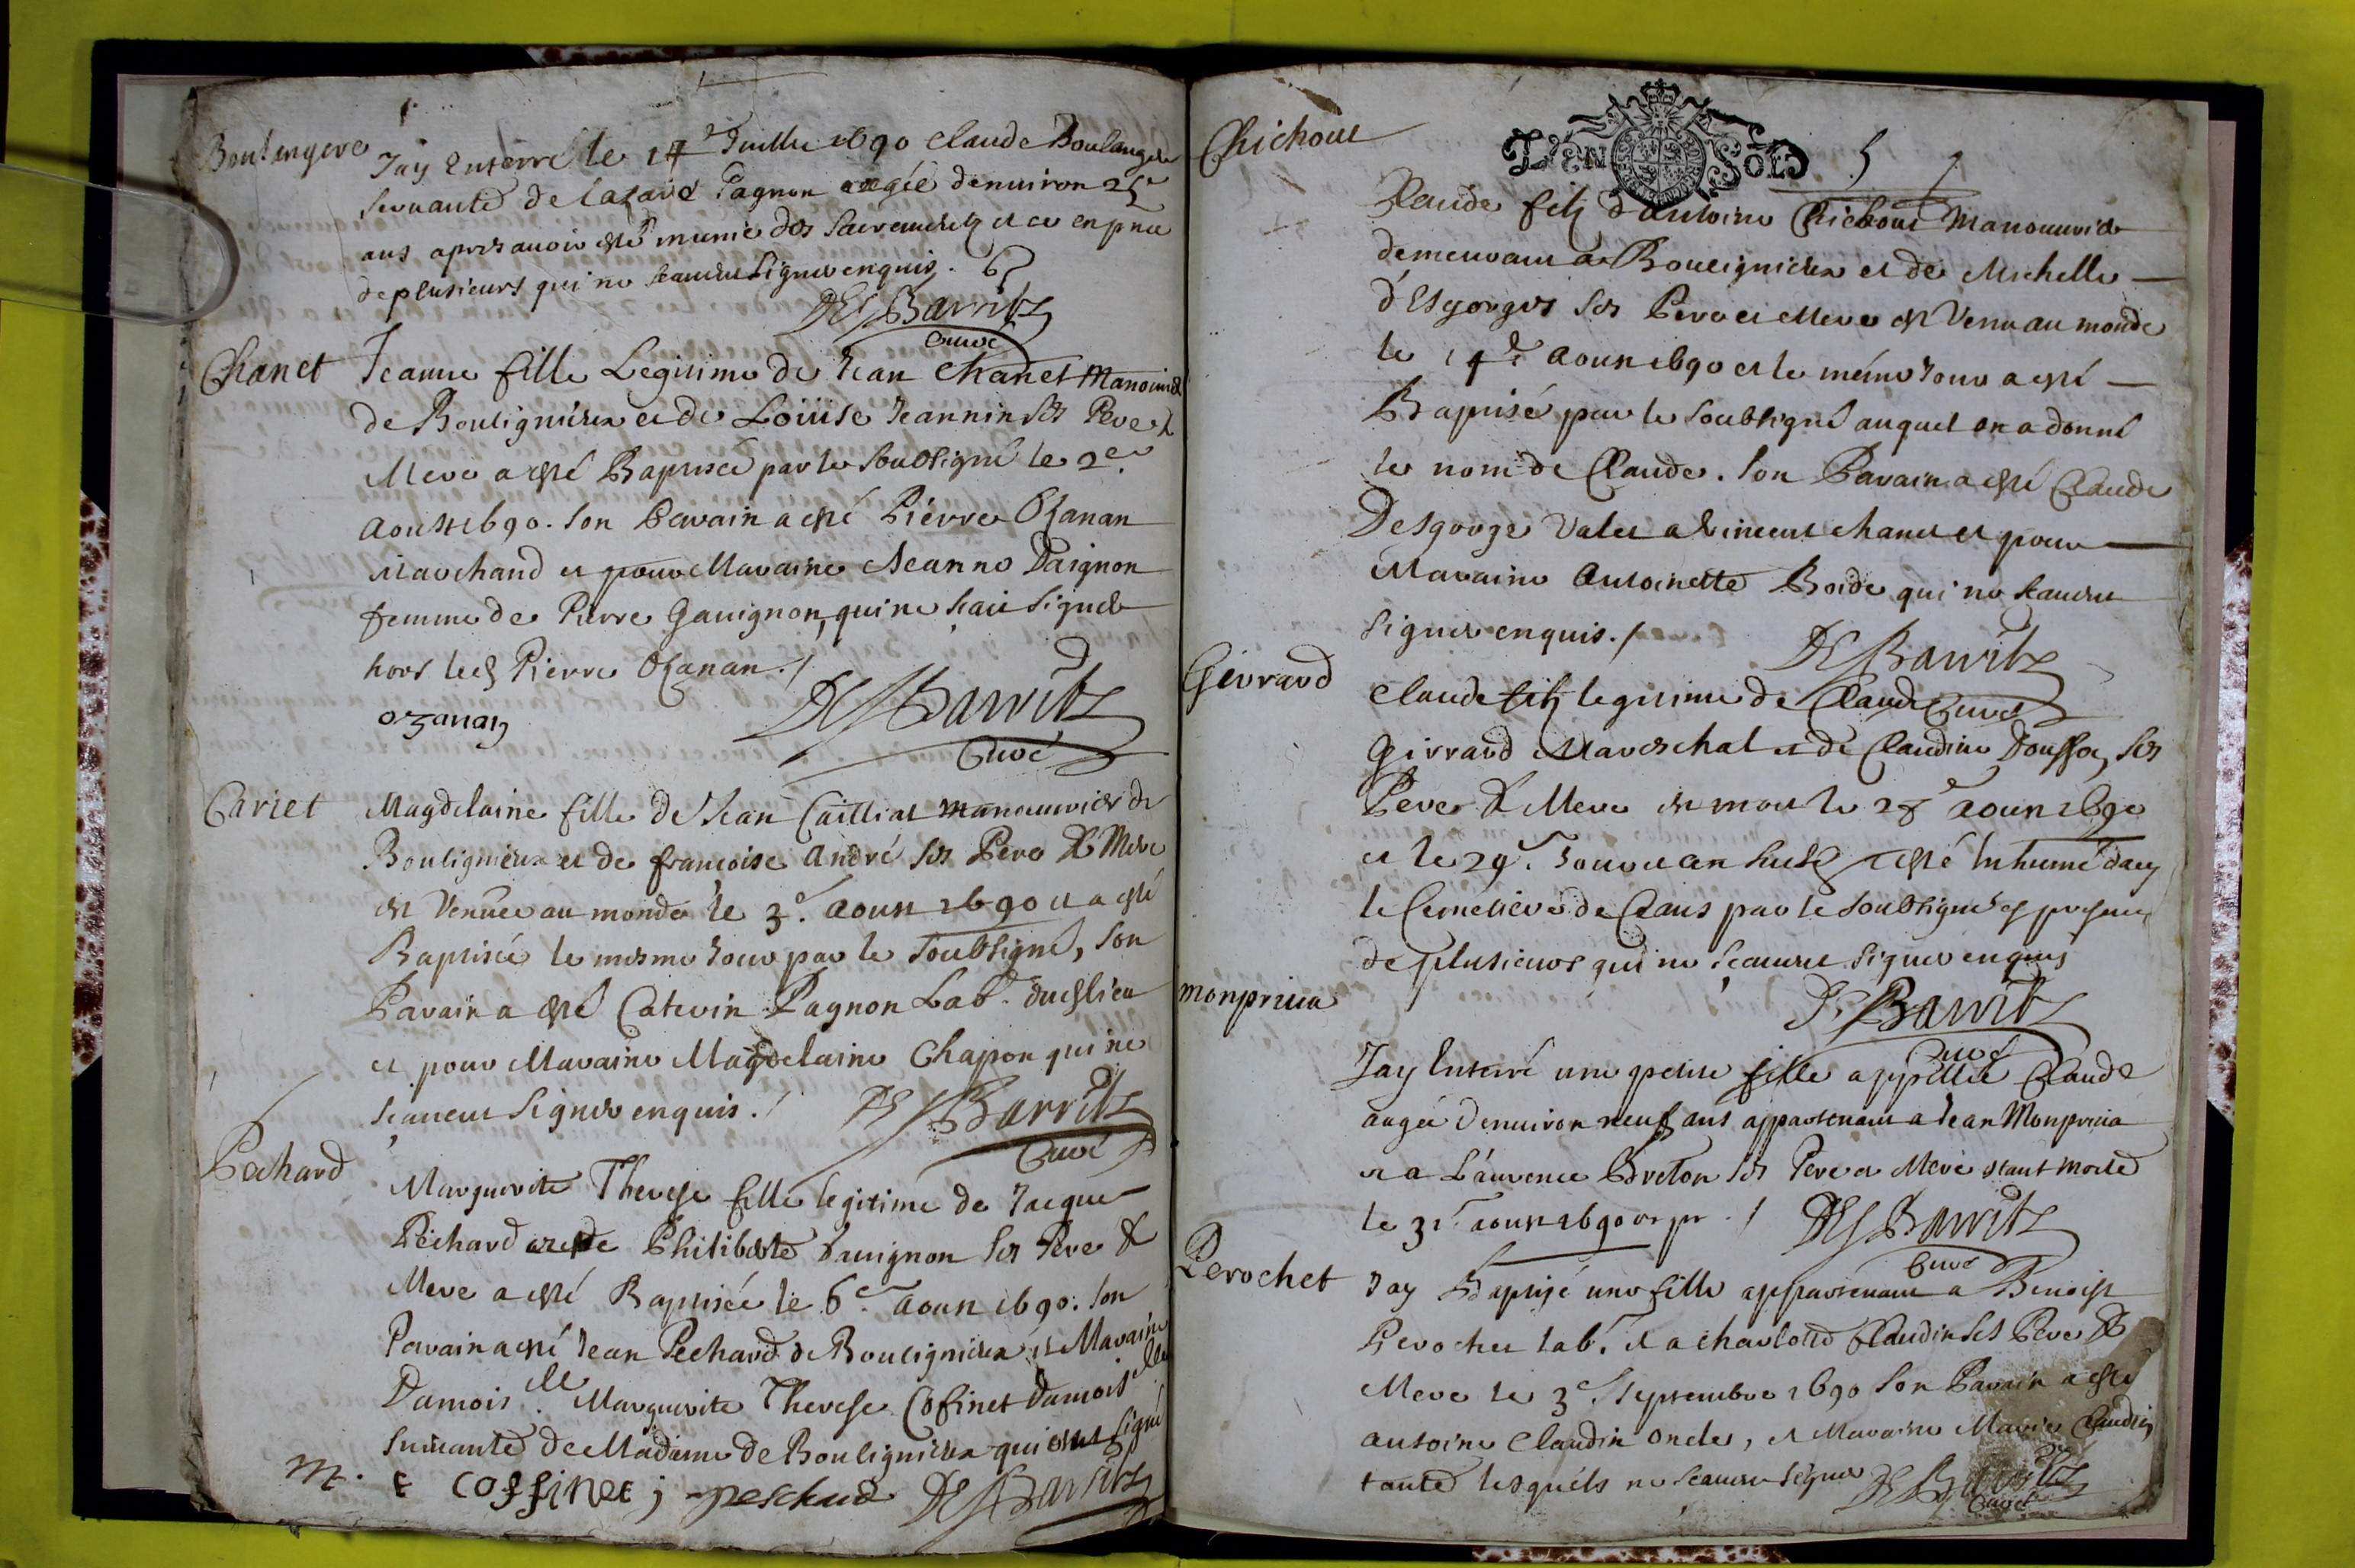 Boulangere
Jay Enterré le 14e Juillet 1690 Claude Boulangere
servante de Lazare Pagnon aagée denuiron 25
ans apres auoir esté munie des Sacrements et ce en pnce
de plusieurs qui ne scauent Signer enquis.
DesBarritz
Curé
Chanet
Jeanne fille Legitime de Jean Chanet Manouvrier
de Bouligneux et de Loüise Jeannin ses Pere &
Mere a esté Baptisée par le soubsigné le 2e.
Aoust 1690. son Parain a esté Pierre Ozanan
Marchand et pour Maraine Jeanne Paignon
femme de Pierre Gauignon, qui ne scait signer
hors led Pierre Ozanan. /
ozanan
DesBarritz
Curé
Cariet
Magdelaine fille de Jean Cailliat manouurier de
Bouligneux et de francoise André ses Pere & Mere
est Venüe au monde le 3e. Aoust 1690 et a esté
Baptisée le mesme Jour par le Soubsigné, son
Parain a esté Caterin Pagnon Lab.r dud lieu
et pour Maraine Magdelaine Chapon qui ne
scauent Signer enquis. /
DesBarritz
Curé
Pechard
Marguerite Therese fille legitime de Jacque
Pechard et de Philiberte Dauignon ses Pere &
Mere a esté Baptisée le 6e. Aoust 1690. son
Parain a esté Jean Pechard de Bouligneux et Maraine
Damois.lle Marguerite Therese Cofinet Damoiselle
suiuante de Madame de Bouligneux qui ont signé
m. t coffinet j peschard DesBarritz
Chichout
D'EN SOLD
5
Claude filz d'Antoine Chichout Manouurier
demeurant a Bouligneux et de Michelle
d'Esgorges ses Pere et Mere est Venu au monde
le 14e. Aoust 1690 et le même Jour a esté
Baptisé par le soubsigné auquel on a donné
le nom de Claude. Son Parain a esté Claude
Desgorge Valet a Vincent Chanet et pour
Maraine Antoinette Boide qui ne scauent
signer enquis. /
DesBarritz
Curé
Girrard
Claude filz legitime de Claude
Girrard Mareschal et de Claudine ses
Pere & Mere est mort le 28e Aoust 1690
et le 29e. Jour a esté Inhumé dans
le Cemetiere de Ceans par le soubsigné en presence
de plusieurs qui ne scauent signer enquis
DesBarritz
Curé
monpricia
Jay Enterré une petite fille appellée Claude
augée denuiron neuf ans appartenant a Jean Monpricia
et a Laurence Breton ses Pere et Mere etant morte
le 31e aoust 1690 /
DesBarritz
Curé
Perochet
Jay Baptisé une fille appartenant a Benoist
Perochet lab.r et a Charlotte Claudin ses Pere &
Mere le 3e. Septembre 1690 Son Parain a esté
Antoine Claudin oncle, et Maraine Marie Claudin
tante lesquels ne scauent signer
DesBarritz
Curé